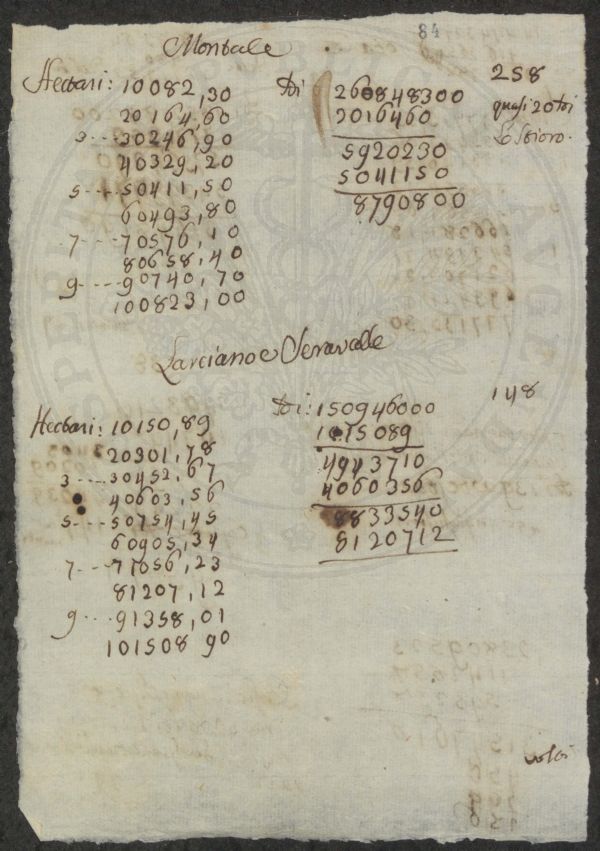 84
Montale
Hectari: 10082,30
20164,60
3---30246,90
40329,20
5---50411,50
60493,80
7----70576,10
80658,40
9----90740,70
100823,00
260848300
2016460
5920230
5041150
8790800
258
quasi 20
Larciano e Seravalle
Hectari: 10150,89
20301,78
3---30452,67
40603,56
5---50754,45
60905,34
7---71056,23
81207,12
9---91358,01
101508 90
150946000
1015089
4943710
4060356
8833540
8120712
148